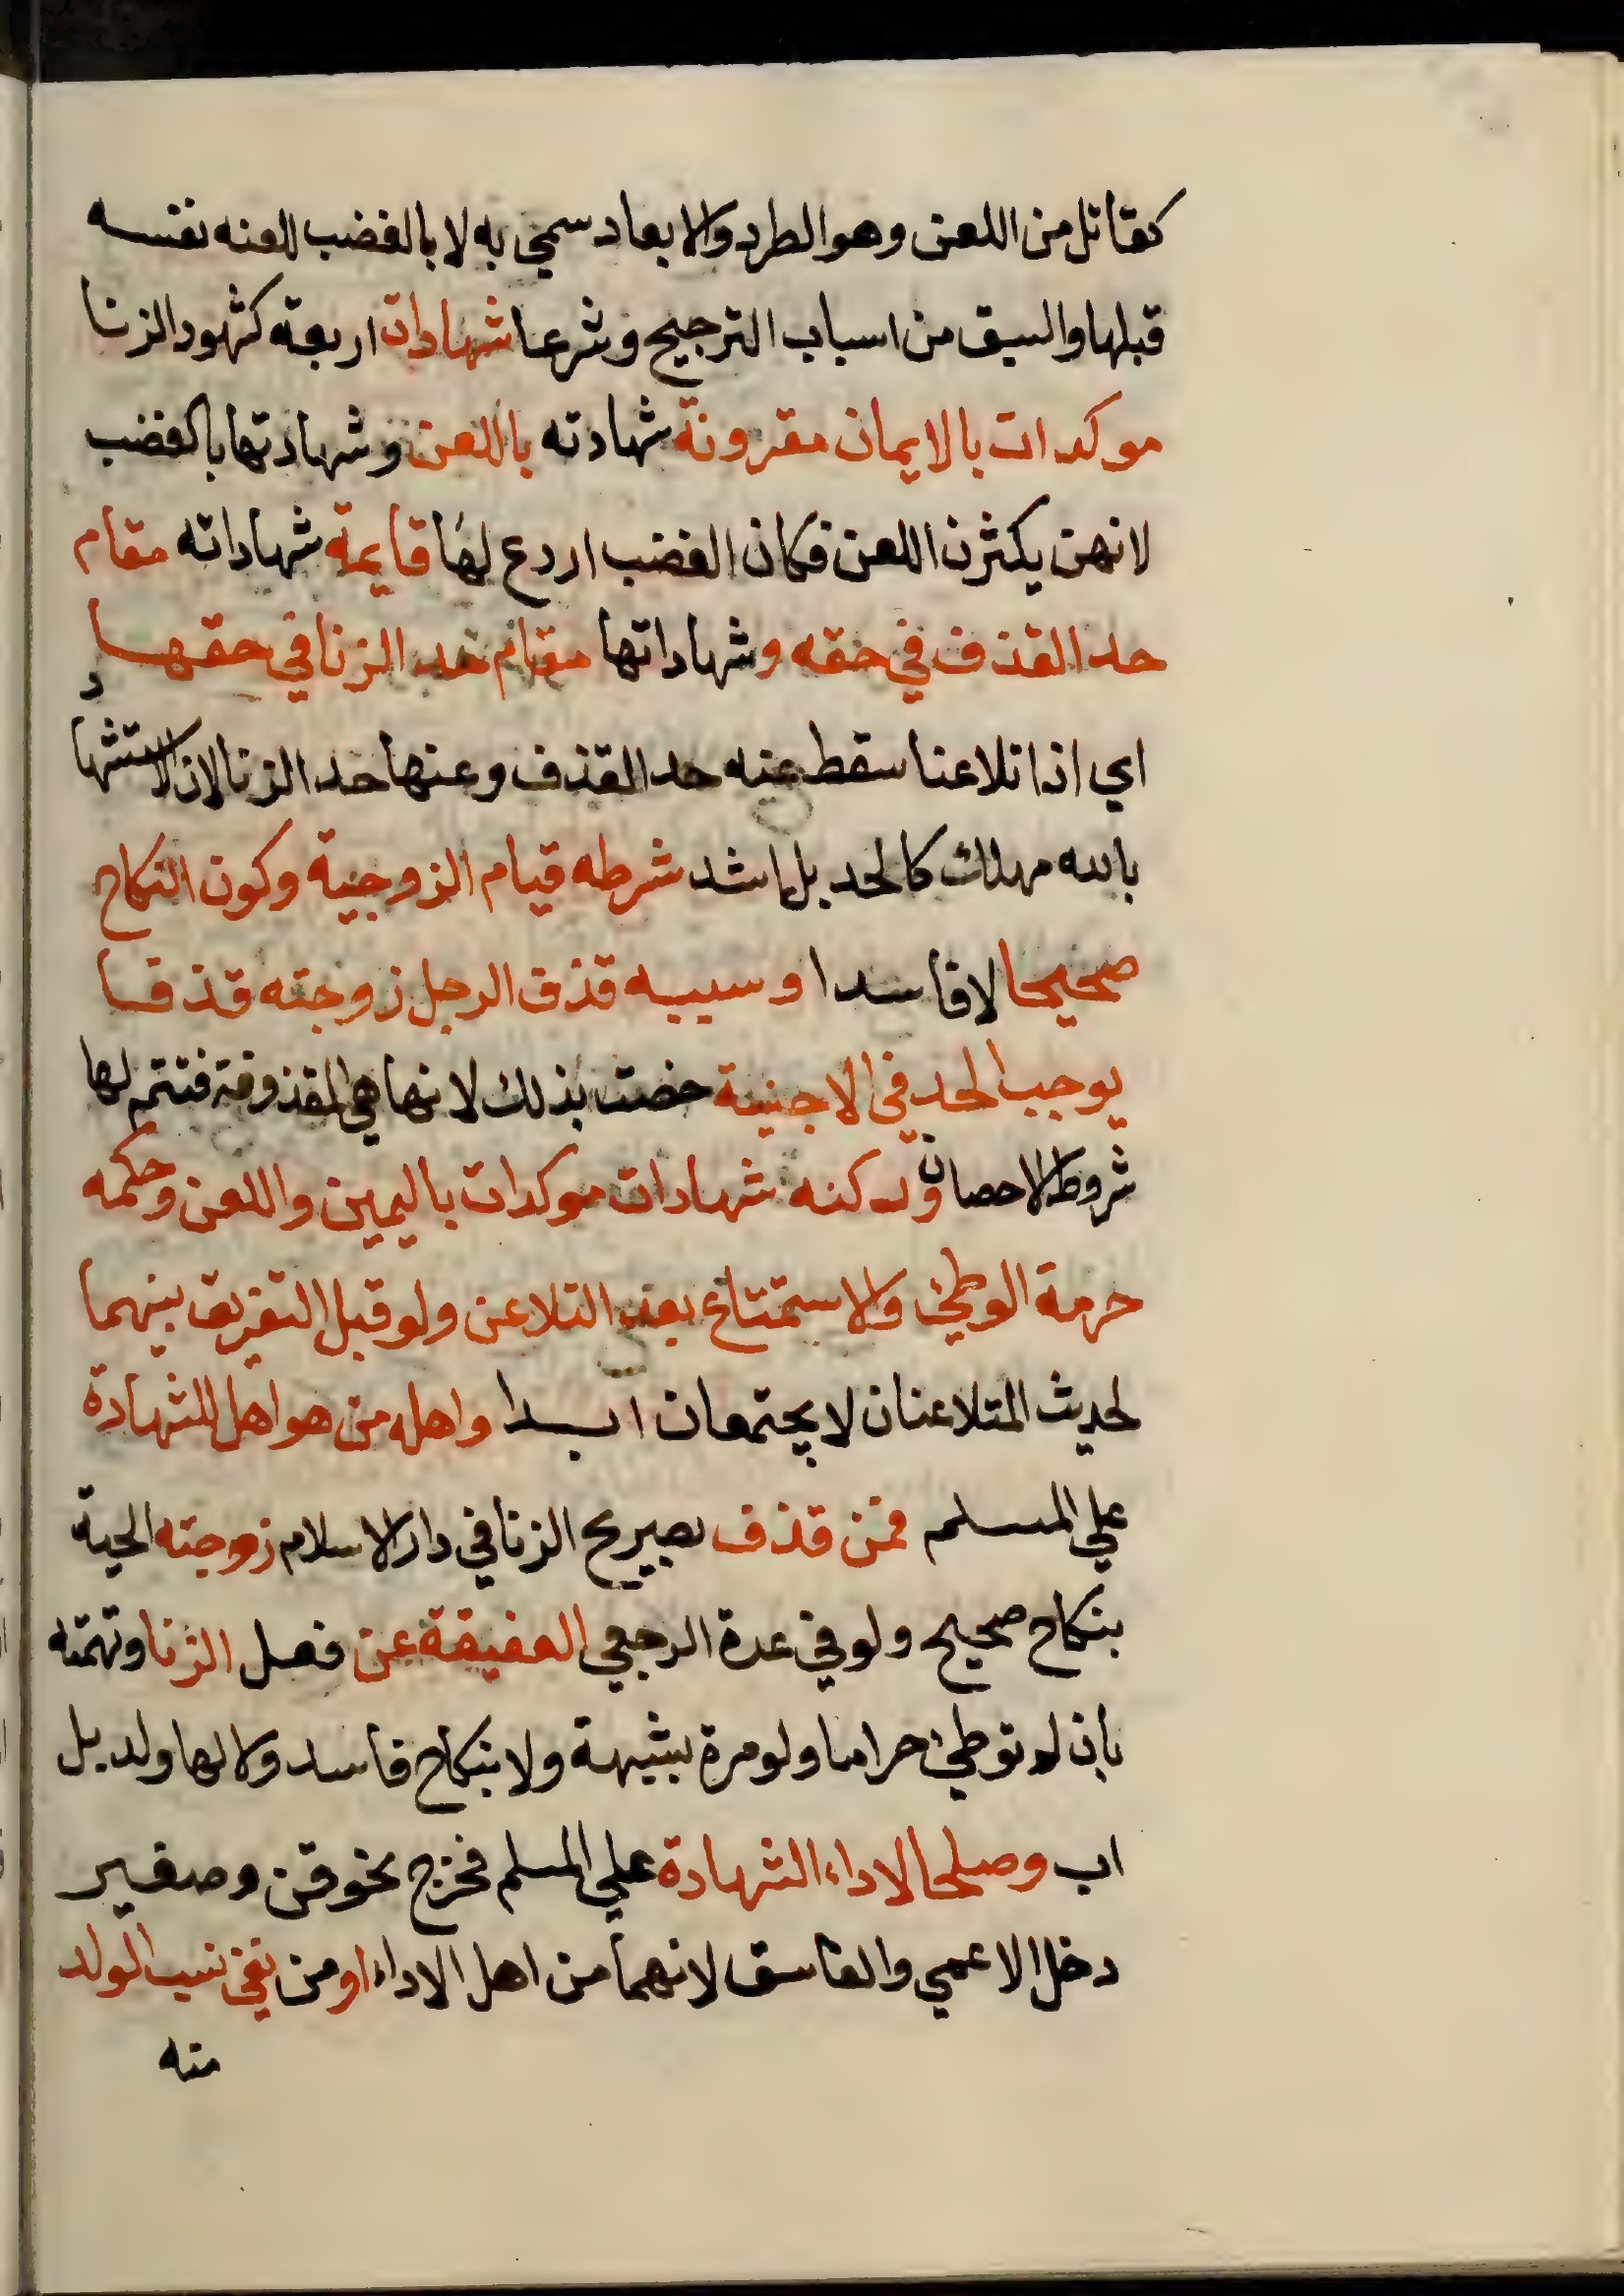 كقاتل من اللعن وهو الطرد والابعاد سمي به لا بالغضب للعنه نفسه
قبلها والسبق من اسباب الترجيح وشرعا شهادات اربعة كشهود الزنا
موكدات بالايمان مقرونة شهادته باللعن وشهادتها بالغضب
لانهن يكثرن اللعن فكان الغضب اردع لها قايمة شهاداته مقام
حد القذف في حقه وشهاداتها مقام حد الزنا في حقها
اي اذا تلاعنا سقط عنه حد القذف وعنها حد الزنا لان الاستشهاد
بالله مهلك كالحد بل اشد شرطه قيام الزوجية وكون النكاح
صحيحا لا فاسدا وسببه قذف الرجل زوجته قذفا
يوجب الحد في الاجنبية خصت بذلك لانها هي المقذوفة فتتم لها
شروط الاحصان وركنه شهادات موكدات باليمين واللعن وحكمه
حرمة الوطئ والاستمتاع بعد التلاعن ولو قبل التفريق بينهما
لحديث المتلاعنان لا يجتمعان ابدا واهله من هو اهل للشهادة
علي المسلم فمن قذف بصريح الزنا في دار الاسلام زوجته الحية
بنكاح صحيح ولو في عدة الرجعي العفيفة عن فعل الزنا وتهمته
بان لم توطئ حراما ولو مرة بشبهة ولا بنكاح فاسد ولا لها ولد بل
اب وصلحا لاداء الشهادة علي المسلم فخرج نحو قن وصغير
دخل الاعمي والفاسق لانهما من اهل الاداء او من نفي نسب الولد
منه